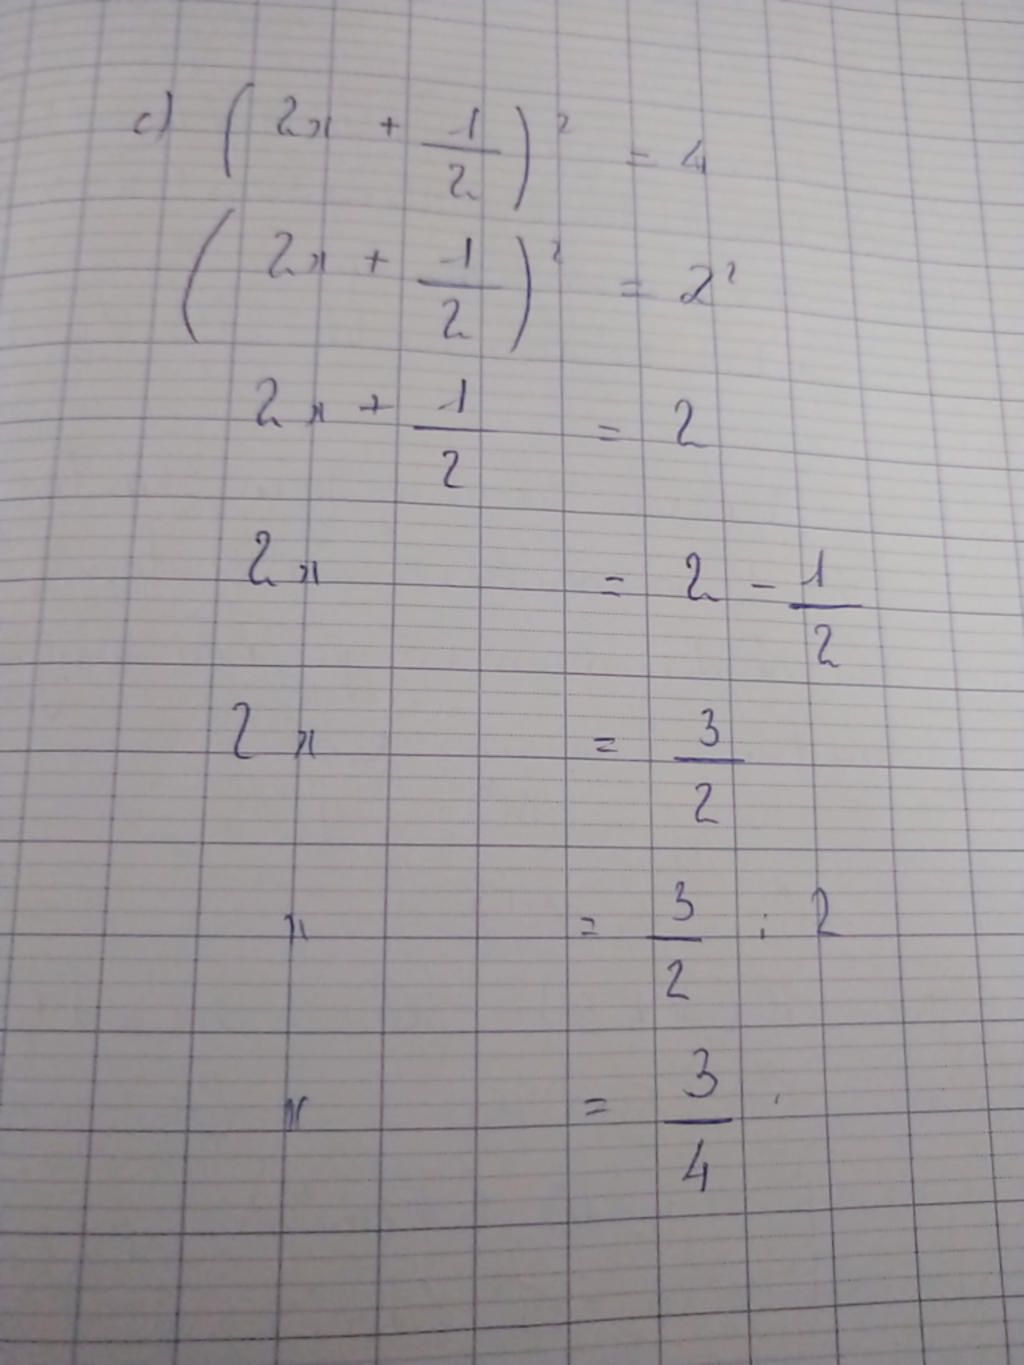 c) (2x + 1/2)² = 4
(2x + 1/2)² = 2²
2x + 1/2 = 2
2x = 2 - 1/2
2x = 3/2
x = 3/2 : 2
x = 3/4 .